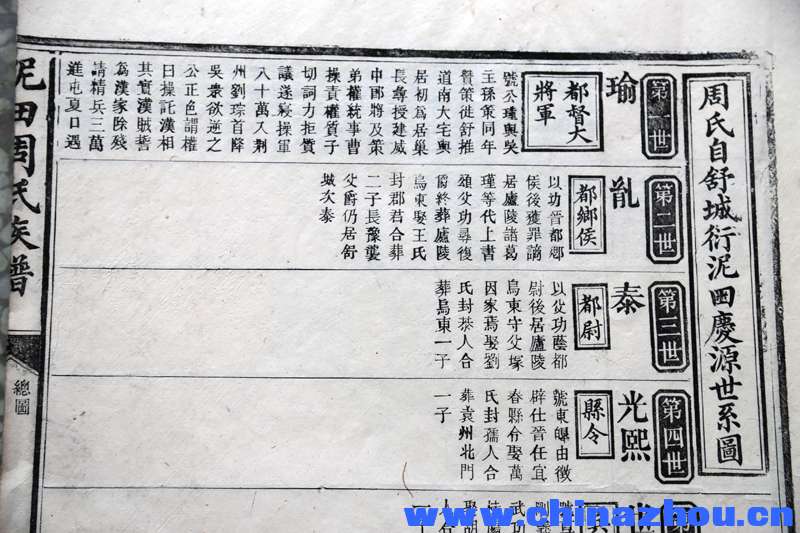 周氏自舒城衍泥田慶源世系圖
第一世
瑜
都督大
將軍
號公瑾與吳
主孫策同年
贊策從舒推
道南大宅與
居初爲居巢
長尋授建威
中郎將及策
弟權統事曹
操責權質子
切詞力拒質
議遂寢操軍
八十萬入荆
州劉琮首降
吳衆欲逆之
公正色謂權
曰操託漢相
其實漢賊誓
爲漢家除殘
請精兵三萬
進屯夏口遇
第二世
胤
都鄉侯
以功晉都鄉
侯後獲罪謫
居廬陵諸葛
瑾等代上書
頌父功尋復
爵終葬廬陵
烏東娶王氏
封郡君合葬
二子長豫襲
父爵仍居舒
城次泰
第三世
泰
都尉
以從功蔭都
尉後居廬陵
烏東守父塚
因家焉娶劉
氏封恭人合
葬烏東一子
第四世
光熙
縣令
號東皞由徵
辟仕晉任宜
春縣令娶萬
氏封孺人合
葬袁州北門
一子
泥田周氏族譜
總圖
www.chinazhou.cn